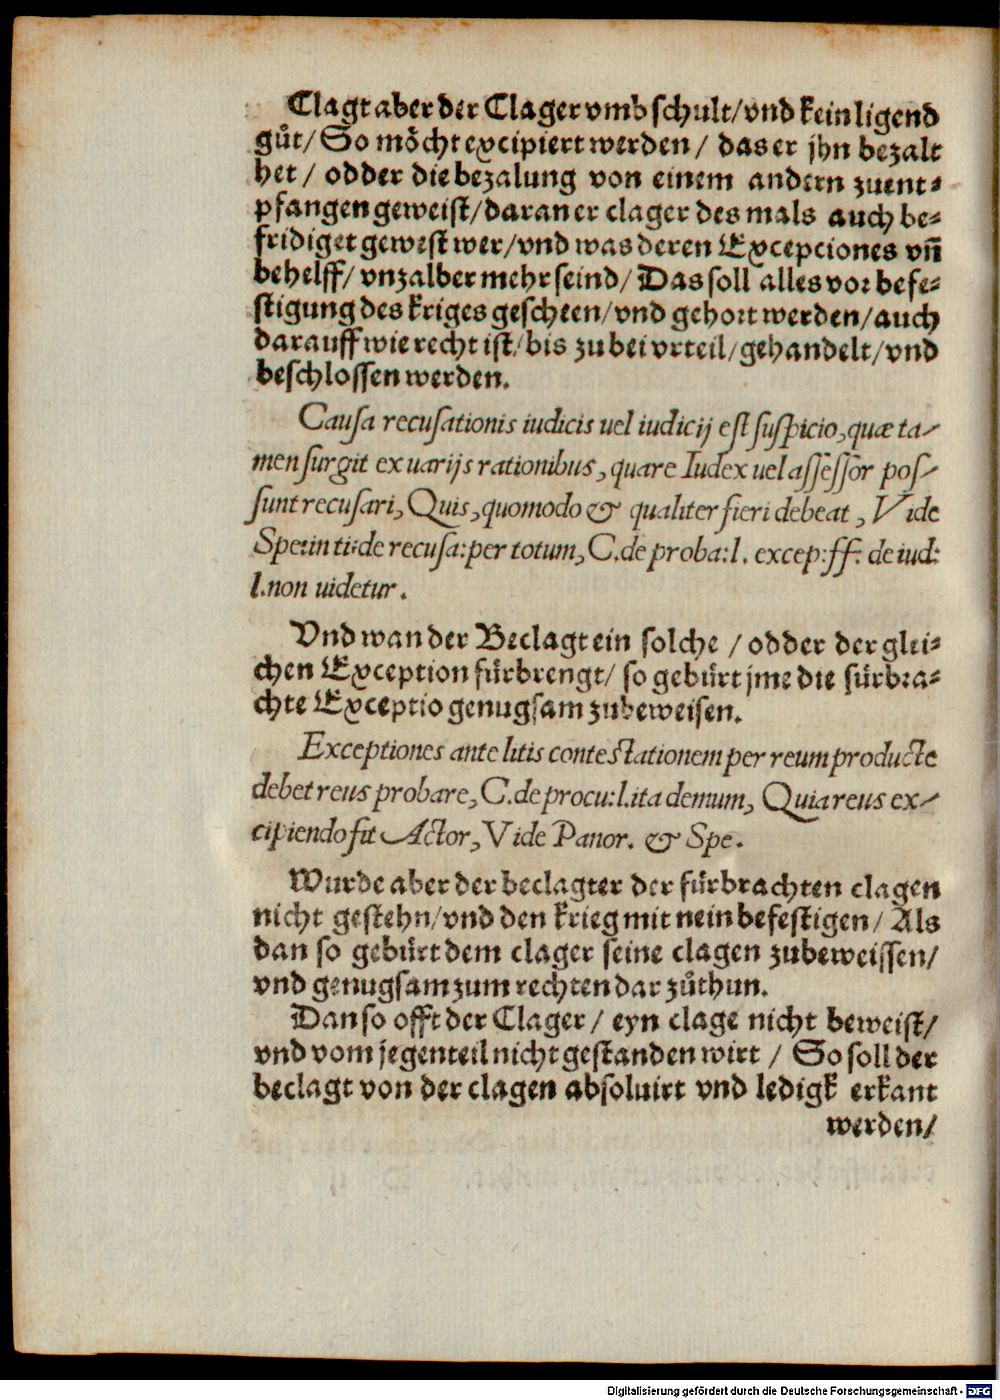 Clagt aber der Clager vmb schult/vnd kein ligend
gůt/ So möcht excipiert werden/ das er jhn bezalt
het/ odder die bezalung von einem andern zuent⸗
pfangen geweist/daran er clager des mals auch be⸗
fridiget gewest wer/vnd was deren Excepciones vñ
behelff/ vnzalber mehr seind/ Das soll alles vor befe⸗
stigung des kriges gescheen/vnd gehort werden/auch
darauff wie recht ist/bis zu bei vrteil/gehandelt/vnd
beschlossen werden.
Causa recusationis iudicis uel iudicij est suspicio, quæ ta-
men surgit ex uarijs rationibus, quare Iudex uel assessor pos-
sunt recusari, Quis, quomodo & qualiter fieri debeat, Vide
Spe:in ti:de recusa:per totum, C.de proba:l. excep:ff: de iud:
l.non uidetur.
Vnd wan der Beclagt ein solche / odder der glei⸗
chen Exception fürbrengt/ so gebürt jme die fürbra⸗
chte Exceptio genugsam zubeweisen.
Exceptiones ante litis contestationem per reum producte
debet reus probare, C.de procu:l.ita demum, Quia reus ex-
cipiendo fit Actor, Vide Panor. & Spe.
Wurde aber der beclagter der fürbrachten clagen
nicht gestehn/vnd den krieg mit nein befestigen/ Als
dan so gebürt dem clager seine clagen zubeweissen/
vnd genugsam zum rechten dar zůthun.
Dan so offt der Clager / eyn clage nicht beweist/
vnd vom jegenteil nicht gestanden wirt / So soll der
beclagt von der clagen absoluirt vnd ledigk erkant
werden/
Digitalisierung gefördert durch die Deutsche Forschungsgemeinschaft - DFG